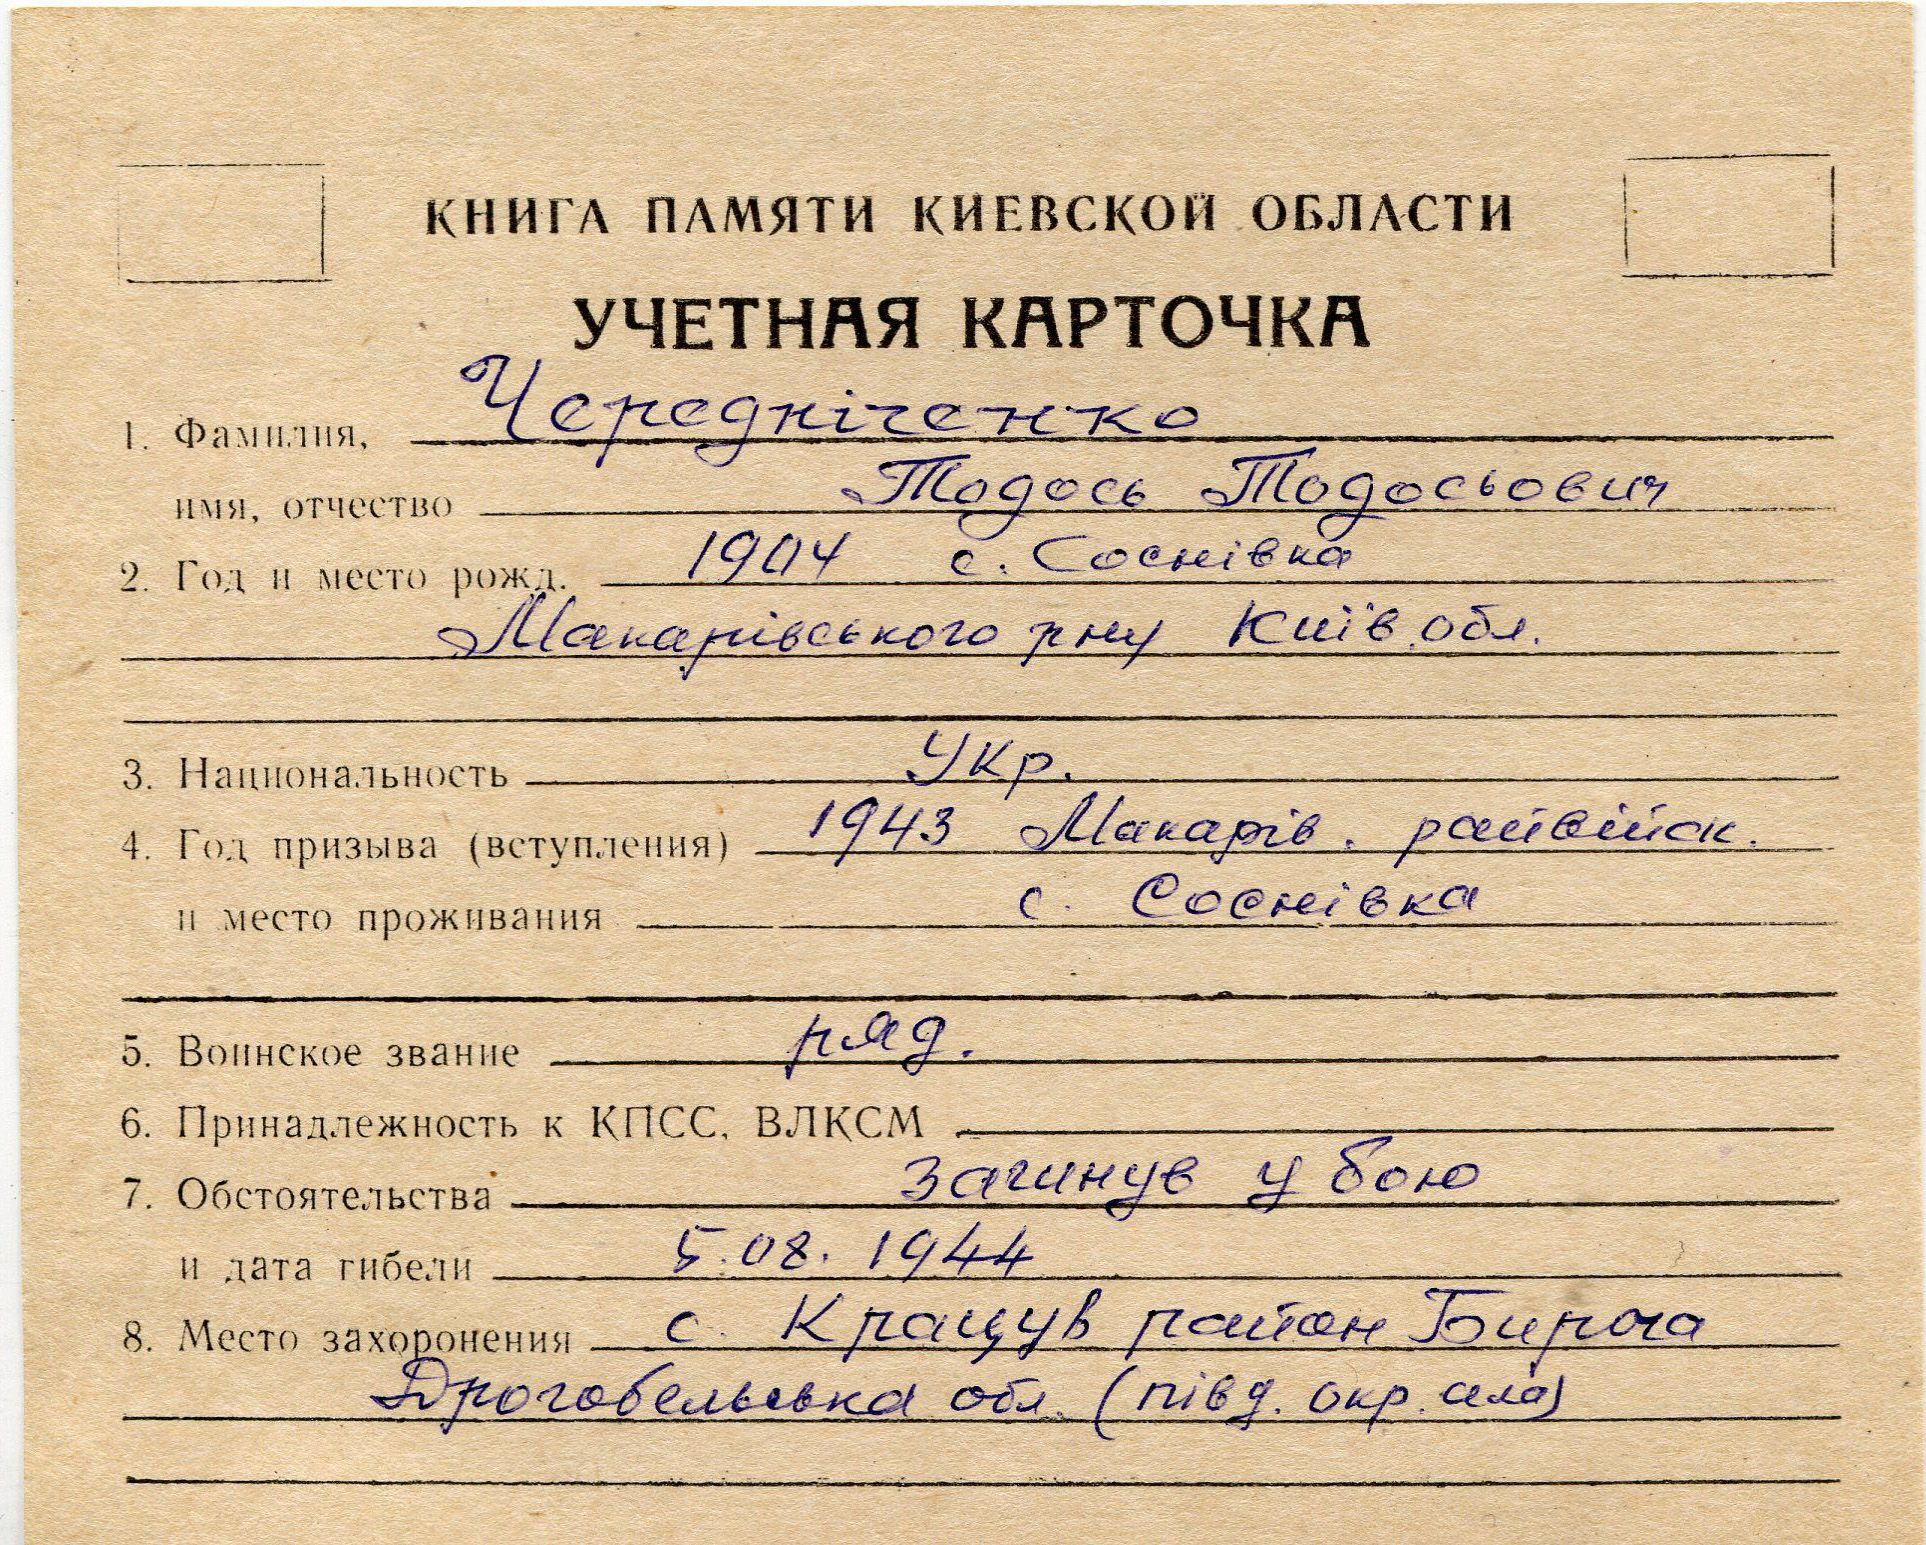 КНИГА ПАМЯТИ КИЕВСКОЙ ОБЛАСТИ
УЧЕТНАЯ КАРТОЧКА
1. Фамилия, Чередніченко
имя, отчество Тодось Тодосьович
2. Год и место рожд. 1904 с. Соснівка
Макарівського р-ну Київ. обл.
3. Национальность Укр.
4. Год призыва (вступления) 1943 Макарів. райвійск.
и место проживания с. Соснівка
5. Воинское звание ряд.
6. Принадлежность к КПСС, ВЛКСМ
7. Обстоятельства загинув у бою
и дата гибели 5.08.1944
8. Место захоронения с. Кращув район Бирча
Дрогобельська обл. (півд. окр. села)